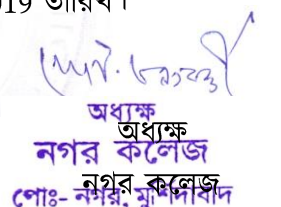 19 তারিখ।
অধ্যক্ষ
অধ্যক্ষ
নগর কলেজ
নগর কলেজ
পোঃ- নগর, মুর্শিদাবাদ